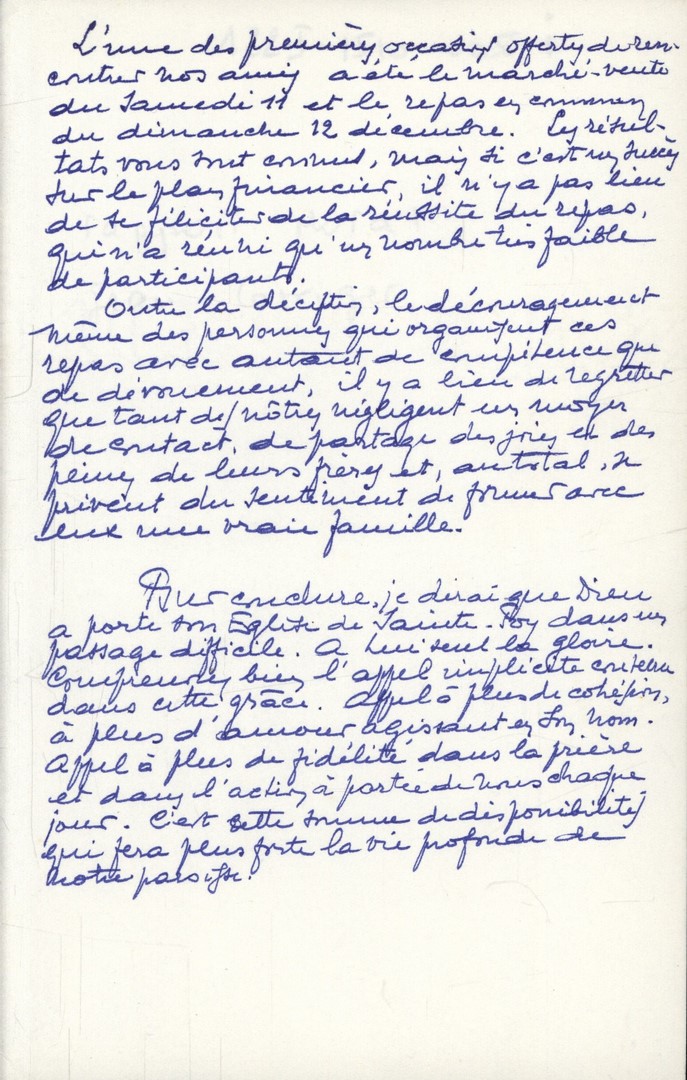 L'une des premières occasions offertes de ren-
contrer nos amis a été le marché-vente
du Samedi 11 et le repas en commun
du dimanche 12 décembre. Les résul-
tats vous sont connus, mais si c'est un succès
sur le plan financier, il n'y a pas lieu
de se féliciter de la réussite du repas,
qui n'a réuni qu'un nombre très faible
de participants.
Outre la déception, le découragement
même des personnes qui organisent ces
repas avec autant de compétence que
de dévouement, il y a lieu de regretter
que tant des nôtres négligent un moyen
de contact, de partage des joies et des
peines de leurs frères et, au total, se
privent du sentiment de former avec
eux une vraie famille.
Pour conclure, je dirai que Dieu
a porté son Église de Sainte-Foy dans un
passage difficile. A Lui seul la gloire.
Comprenons bien l'appel implicite contenu
dans cette grâce. Appel à plus de cohésion,
à plus d'amour agissant en Son Nom.
Appel à plus de fidélité dans la prière
et dans l'action à portée de nous chaque
jour. C'est cette somme de disponibilités
qui fera plus forte la vie profonde de
notre paroisse.